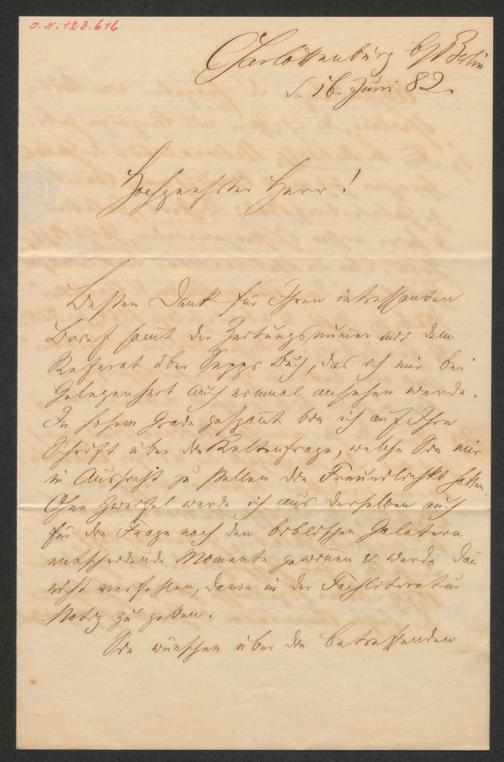 J.N. 123.616
Charlottenburg b/Berlin
d. 16. Juni 82.
Hochgeehrter Herr!
Besten Dank für Ihren interessanten
Brief samt der Zeitungsnummer mit dem
Referat über Sepps Buch, das ich mir bei
Gelegenheit auch einmal ansehen werde.
In hohem Grade gespannt bin ich auf Ihre
Schrift über die Keltenfrage, welche Sie mir
in Aussicht zu stellen die Freundlichkt hatten.
Ohne Zweifel werde ich aus derselben auch
für die Frage nach den biblischen Galatern
entscheidende Momente gewinnen & werde dan
nicht verfehlen, davon in der Fachliteratur
Notiz zu geben.
Sie wünschen über die betreffenden